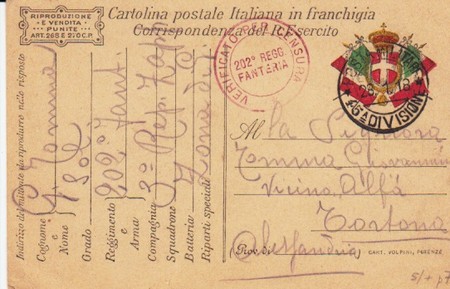 RIPRODUZIONE
E VENDITA
PUNITE
ART. 265 E 210 C.P.
Cartolina postale Italiana in franchigia
Corrispondenza del R. Esercito
VERIFICATO PER CENSURA
202° REGG.
FANTERIA
45ª DIVISIONE
Indirizzo del mittente da riprodurre nelle risposte
Cognome e Nome
Grado Sol
Reggimento o Arma 202° Fant
Compagnia 3° Rep. Zap
Squadrone
Batteria
Riparti speciali
Zona di
Al La Signora
Temma Giovannin
Vicino Alfa
Tortona
(Prov. di Alessandria)
CART. VOLPINI, FIRENZE